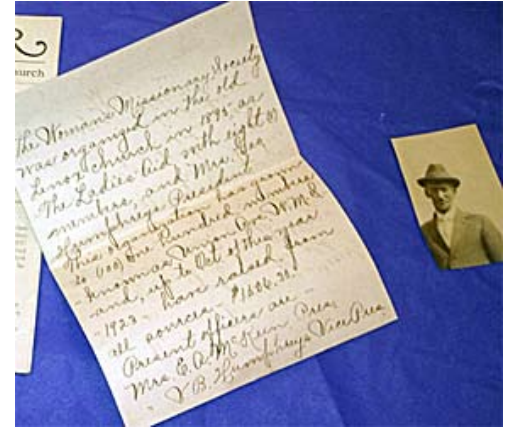 urch
The Woman's Missionary Society
was organized in the old
Lenox Church in 1895 as
The Ladies Aid with eight (8)
members, and Mrs.
Humphreys President.
This organization has grown
to (100) One Hundred members
- known as Union Ave W.M.S.
and, up to Oct of this year
- 1923 - have raised from
all sources - $1606.20.
Present officers are -
Mrs. E. A. McKeen Pres.
" V. B. Humphreys Vice Pres